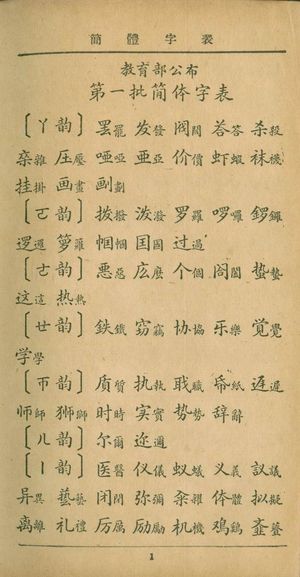 簡體字表
教育部公布
第一批简体字表
〔ㄚ韵〕罢罷 发發 阀閥 荅答 杀殺
杂雜 压壓 哑啞 亚亞 价價 虾蝦 袜襪
挂掛 画畫 劃
〔ㄛ韵〕拨撥 泼潑 罗羅 啰囉 鑼
逻邏 箩籮 帼幗 囯國 过過
〔ㄜ韵〕恶惡 庅麼 个個 阁閣 蛰蟄
这這 热熱
〔ㄝ韵〕鉄鐵 窃竊 协協 乐樂 覚覺
学學
〔ㄭ韵〕质質 执執 职職 帋紙 迟遲
师師 狮獅 时時 实實 势勢 辞辭
〔ㄦ韵〕尔爾 迩邇
〔ㄧ韵〕医醫 仪儀 蚁蟻 义義 议議
异異 艺藝 闭閉 弥彌 籴糴 体體 拟擬
离離 礼禮 厉厲 励勵 机機 鸡鷄
1